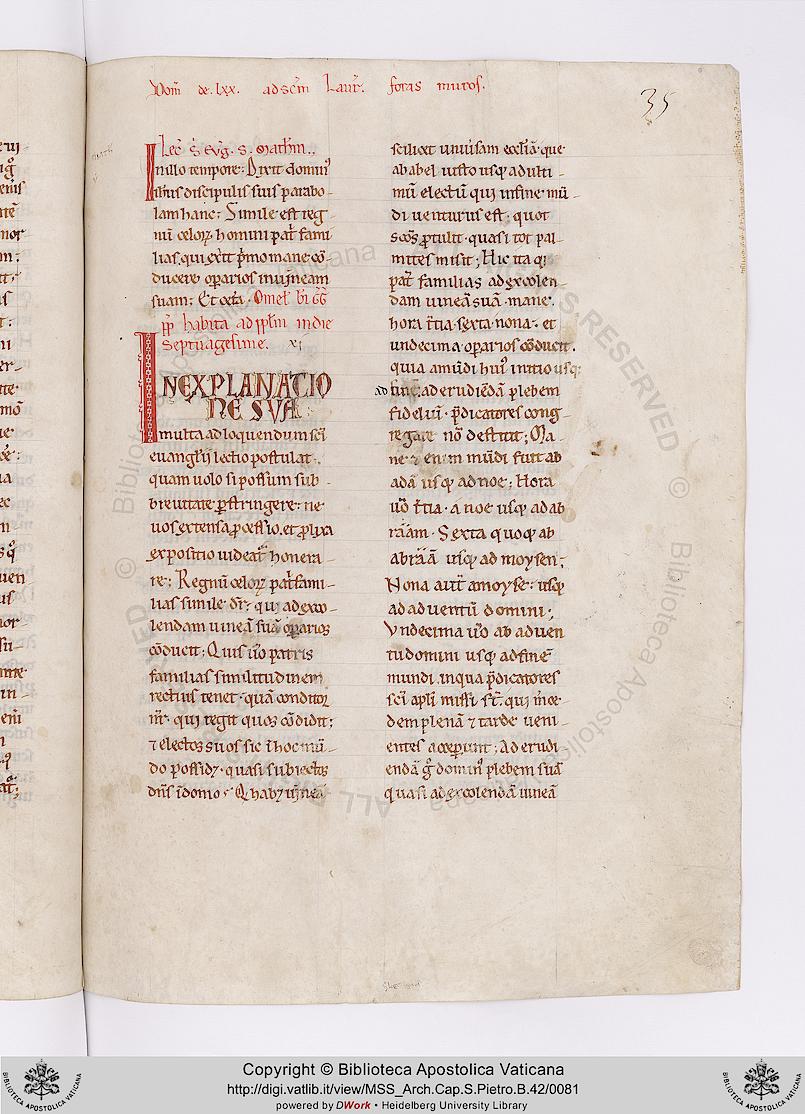 Dom̄ de lxx. ad sc̄m Laur̄. foras muros.
35
Lec̄ s̄ Evḡ. s. Math̄m.
In illo tempore: Dixit dominꝰ
ihūs discipulis suis parabo-
lam hanc; Simile est reg-
nū celoꝝ homini pat̄ fami
lias. qui exiit p̄mo mane cō-
ducere op̄arios in vineam
suam; Et cet̄a. Omeƚ. bī GḠ
pp̄. habita ad pp̄lm in die
Septuagesime. XI
IN EXPLANATIO
NE SVA
multa ad loquendum sc̄i
evangƚij lectio postulat.
quam uolo si possum sub-
breuitate p̄stringere; ne
uos extensa p̄cessio. et p̄lixa
expositio uideat̄ honera-
re; Regnū celoꝝ pat̄fami-
lias simile dr̄; qui ad exco-
lendam uineā suā op̄arios
cōducit; Quis ū̄o patris
familias similitudinem
rectius tenet. quā conditor
nr̄. qui regit quos cōdidit;
⁊ electos suos sic ī hoc mū-
do possidꝫ. quasi subiectos
dn̄s ī domo; Qui habꝫ vineā
scilicet uniūsam eccƚiā. que
ab abel iusto usqꝫ ad ulti-
mū electū qui in fine mū-
di uenturus est; quot
sc̄os p̄tulit. quasi tot pal-
mites misit; Hic itaqꝫ
pat̄ familias ad excolen-
dam uineā suā. mane.
hora t̄tia. sexta. nona. et
undecima op̄arios cōducit.
quia a mūdi huiꝰ initio usqꝫ
ad finē; ad erudiēdā plebem
fideliū. p̄dicatores cong-
regare nō destitit; Ma-
ne etenim mūdi fuit ab
adā usqꝫ ad noe; Hora
ū̄o t̄tia. a noe usqꝫ ad ab
rāam. Sexta quoqꝫ ab
abrāā usqꝫ ad moysen;
Nona aut̄ a moyse. usqꝫ
ad aduentū domini;
Vndecima ū̄o ab aduen
tu domini usqꝫ ad finē
mundi. in qua p̄dicatores
sc̄i apƚi missi st̄. qui m̄ce-
dem plenā ⁊ tarde ueni-
entes accep̄unt; Ad erudi
endā ḡ dominꝰ plebem suā
quasi ad excolendā uineā
Copyright © Biblioteca Apostolica Vaticana
http://digi.vatlib.it/view/MSS_Arch.Cap.S.Pietro.B.42/0081
powered by DWork • Heidelberg University Library